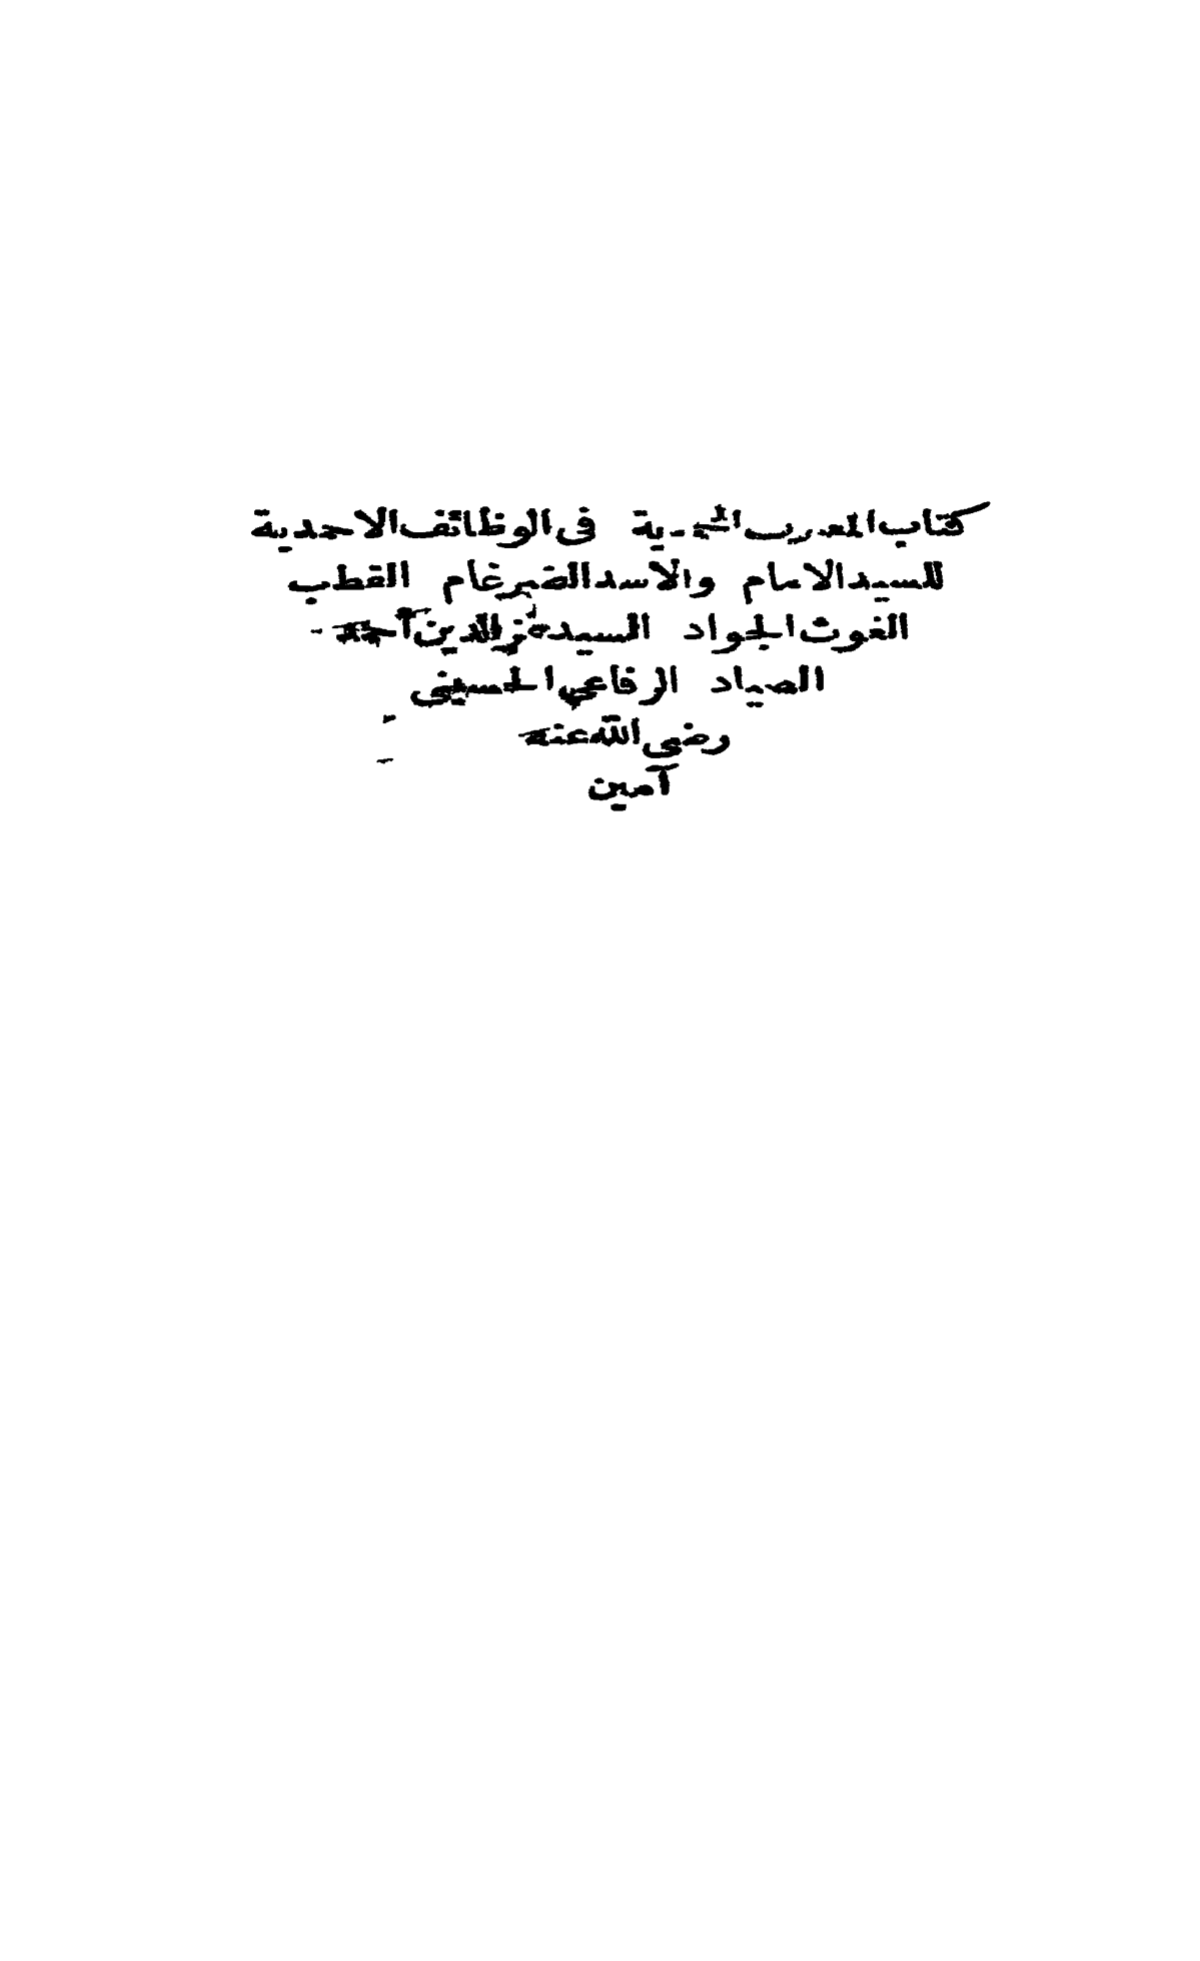 كتاب المعارف المحمدية فى الوظائف الاحمدية
للسيد الامام والاسد الضرغام القطب
الغوث الجواد السيد عز الدين أحمد
الصياد الرفاعي الحسينى
رضى الله عنه
آمين